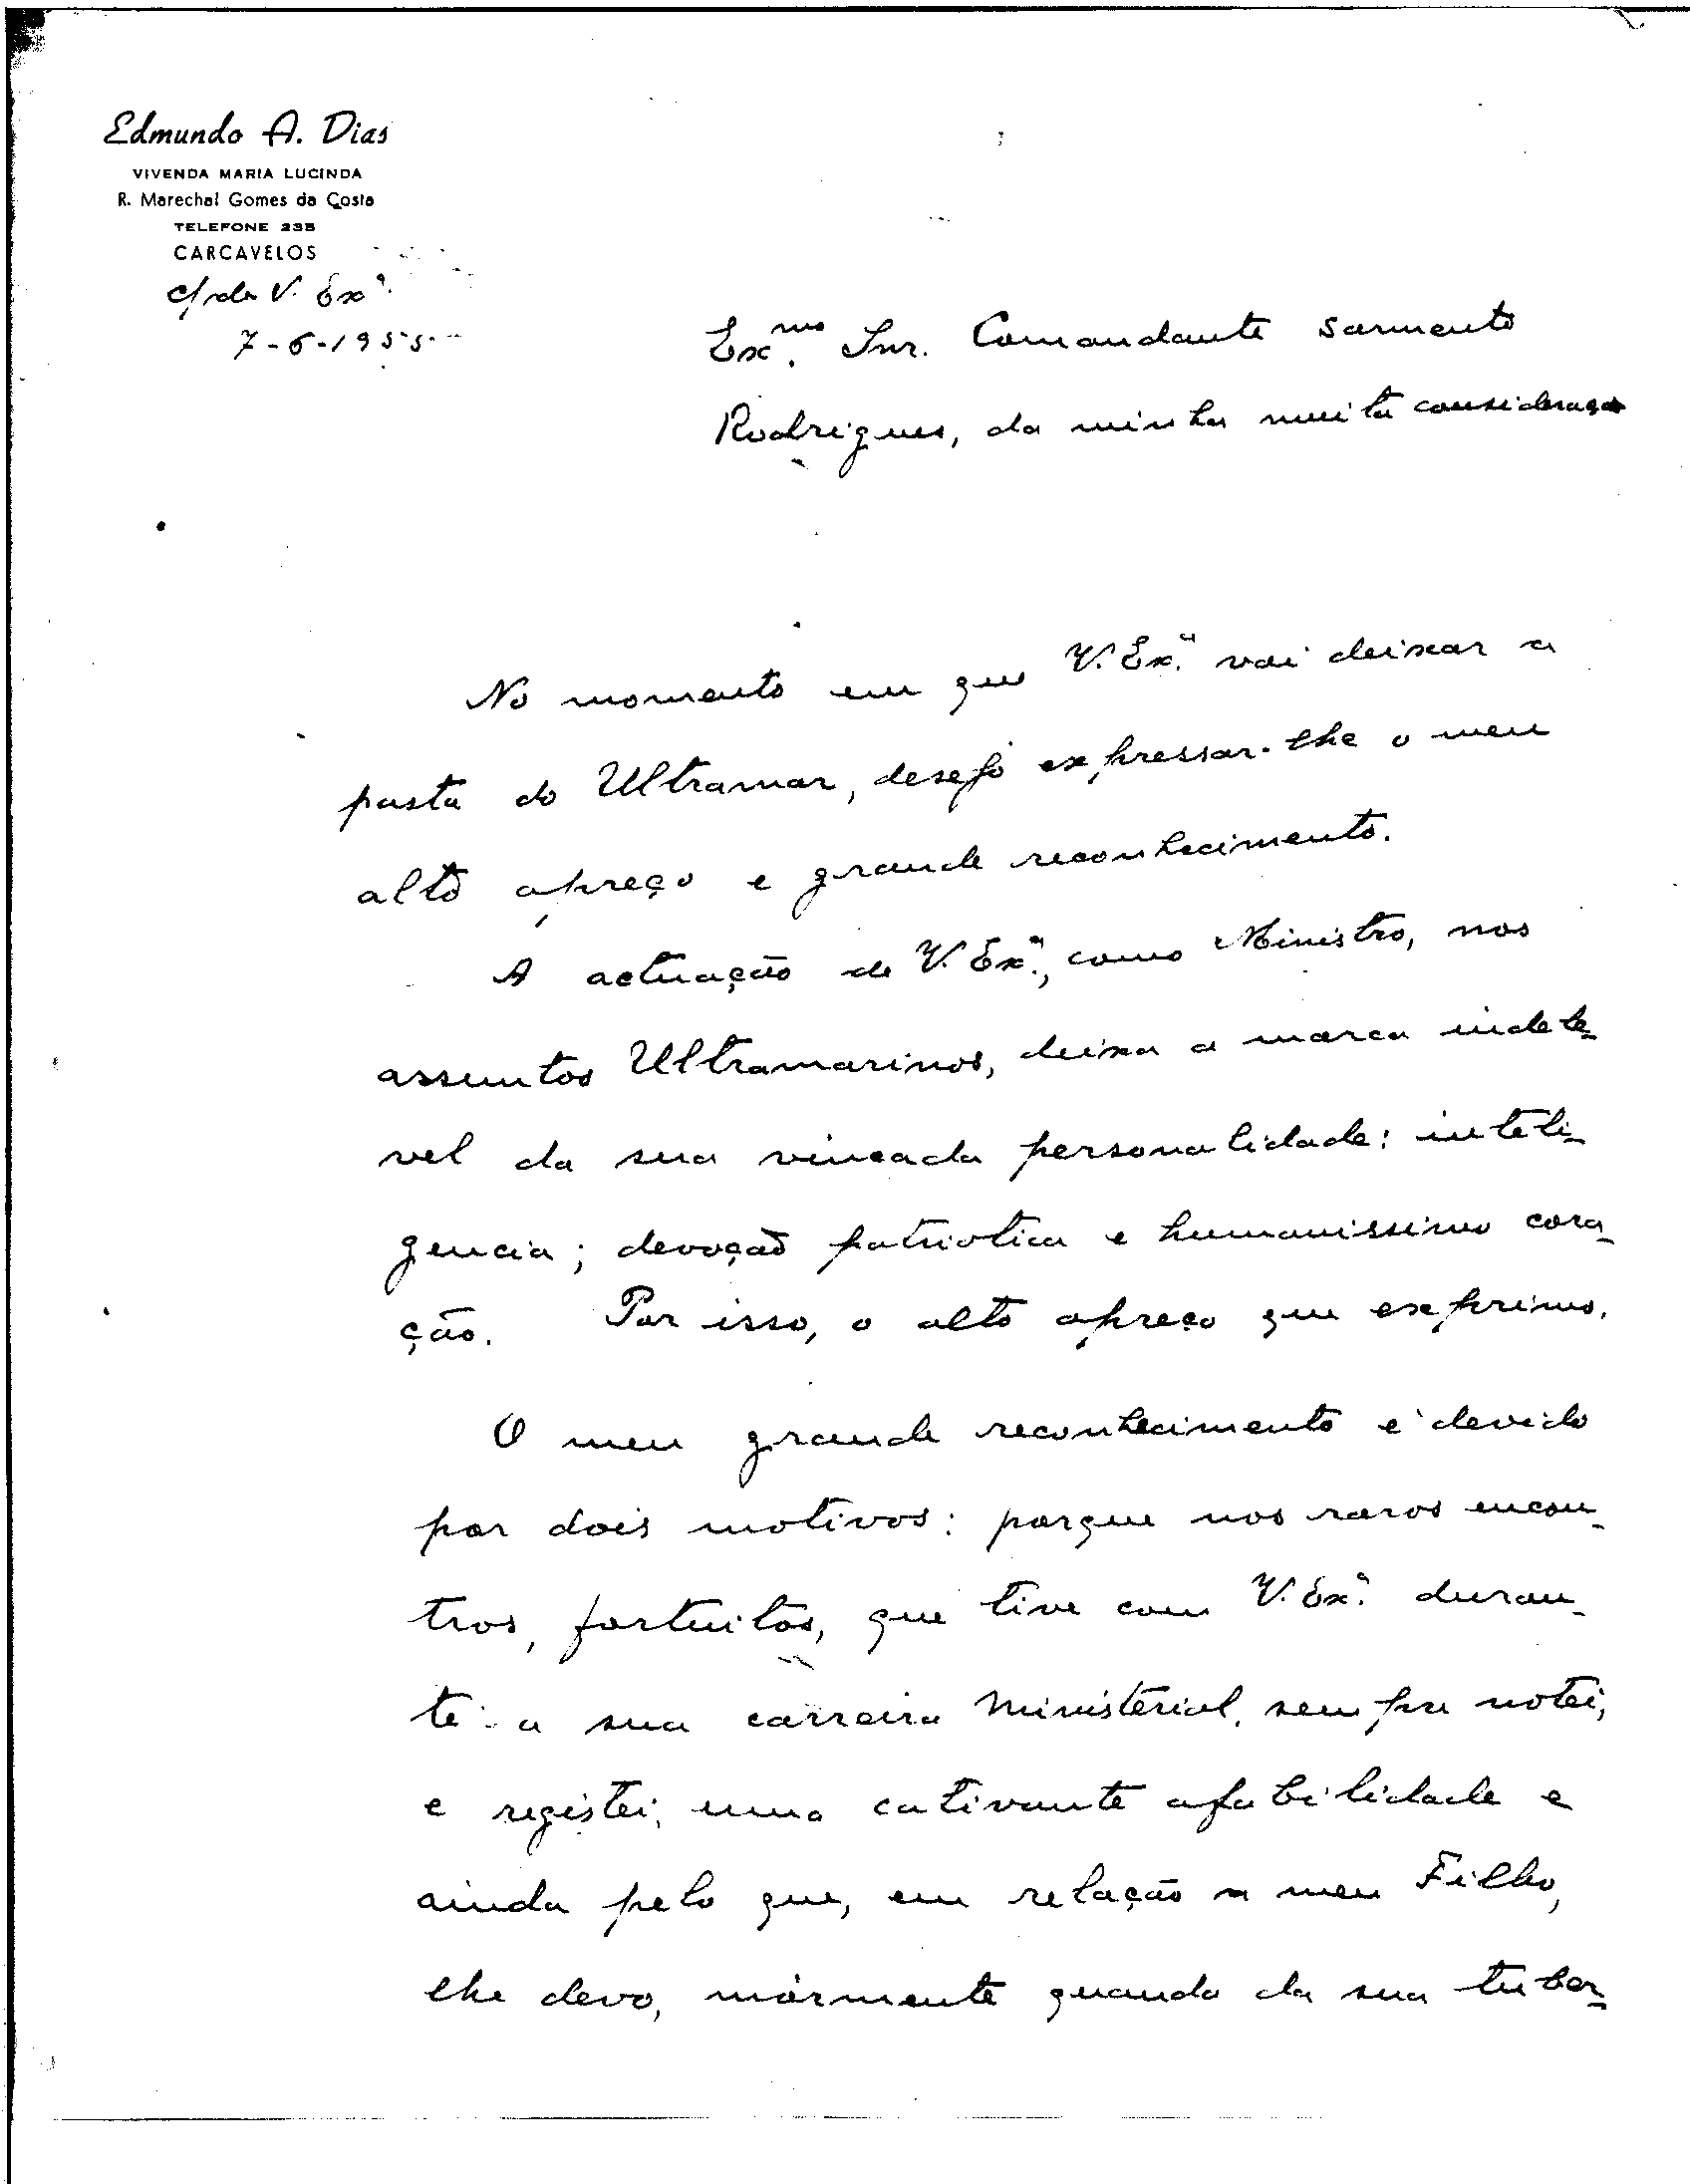 Edmundo A. Dias
VIVENDA MARIA LUCINDA
R. Marechal Gomes da Costa
TELEFONE 235
CARCAVELOS
c/ de V. Exª.
7-6-1955
Ex.mo Snr. Comandante Sarmento
Rodrigues, da minha muita consideração
No momento em que V. Ex.ª vai deixar a
pasta do Ultramar, desejo expressar-lhe o meu
alto apreço e grande reconhecimento.
A actuação de V. Ex.ª, como Ministro, nos
assuntos Ultramarinos, deixa a marca indelé-
vel da sua vincada personalidade: inteli-
gencia; devoção patriotica e humanissimo cora-
ção. Por isso, o alto apreço que exprimo.
O meu grande reconhecimento é devido
por dois motivos: porque nos raros encon-
tros, fortuitos, que tive com V. Ex.ª duran-
te a sua carreira Ministerial, sempre notei,
e registei, uma cativante afabilidade e
ainda pelo que, em relação a meu Filho,
lhe devo, mórmente quando da sua tuber-